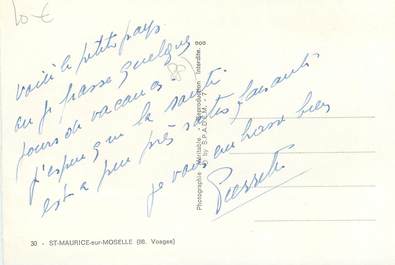 10 €
Voilà le petit pays
où je passe quelques
jours de vacances
J'espère que la santé
est à peu près satisfaisante
je vous embrasse bien
Pierrette
Photographie Véritable - Reproduction Interdite
by S.P.A.D.E.M.
30 - ST-MAURICE-sur-MOSELLE (88. Vosges)